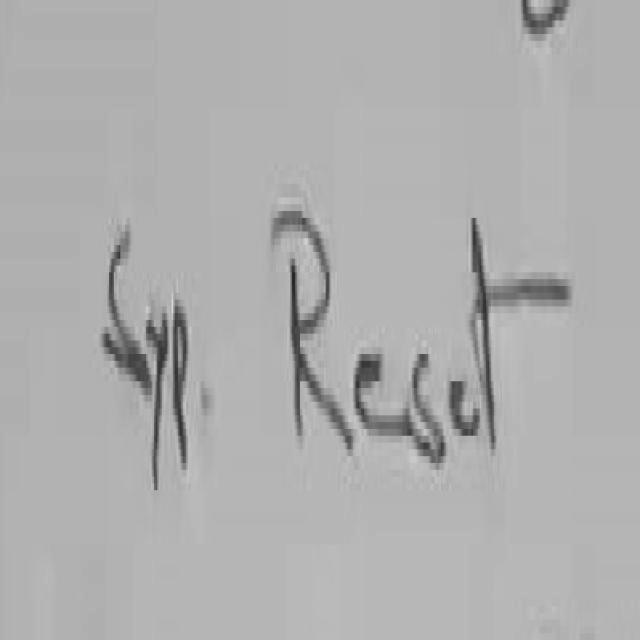 Syp. Reset